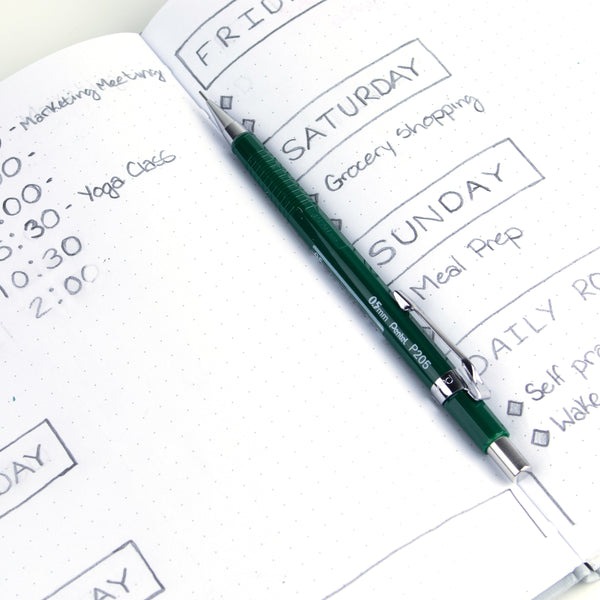 - Marketing Meeting
00 -
:00 -
5:30 - Yoga Class
10:30
2:00
DAY
AY
FRID
SATURDAY
Grocery shopping
SUNDAY
Meal Prep
DAILY RO
Self pra
Wake
0.5mm Pentel P205